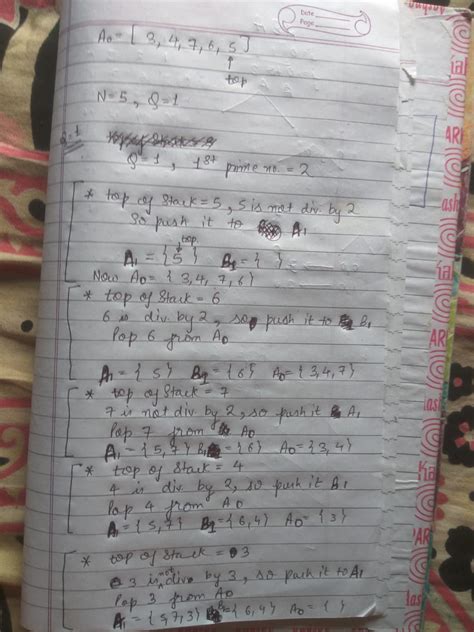 Date
Page
A0 = [ 3, 4, 7, 6, 5 ]
↑
top
N=5, Q=1
Q=1
Q=1, 1st prime no. = 2
* top of stack = 5, 5 is not div by 2
So push it to A1
top
A1 = { 5 } B1 = { }
Now A0 = { 3, 4, 7, 6 }
* top of stack = 6
6 is div by 2, so push it to B1
Pop 6 from A0
A1 = { 5 } B1 = { 6 } A0 = { 3, 4, 7 }
* top of stack = 7
7 is not div by 2, so push it A1
Pop 7 from A0
A1 = { 5, 7 } B1 = { 6 } A0 = { 3, 4 }
* top of stack = 4
4 is div by 2, so push it B1
Pop 4 from A0
A1 = { 5, 7 } B1 = { 6, 4 } A0 = { 3 }
* top of stack = 3
3 is not div by 3, so push it to A1
Pop 3 from A0
A1 = { 5, 7, 3 } B1 = { 6, 4 } A0 = { }